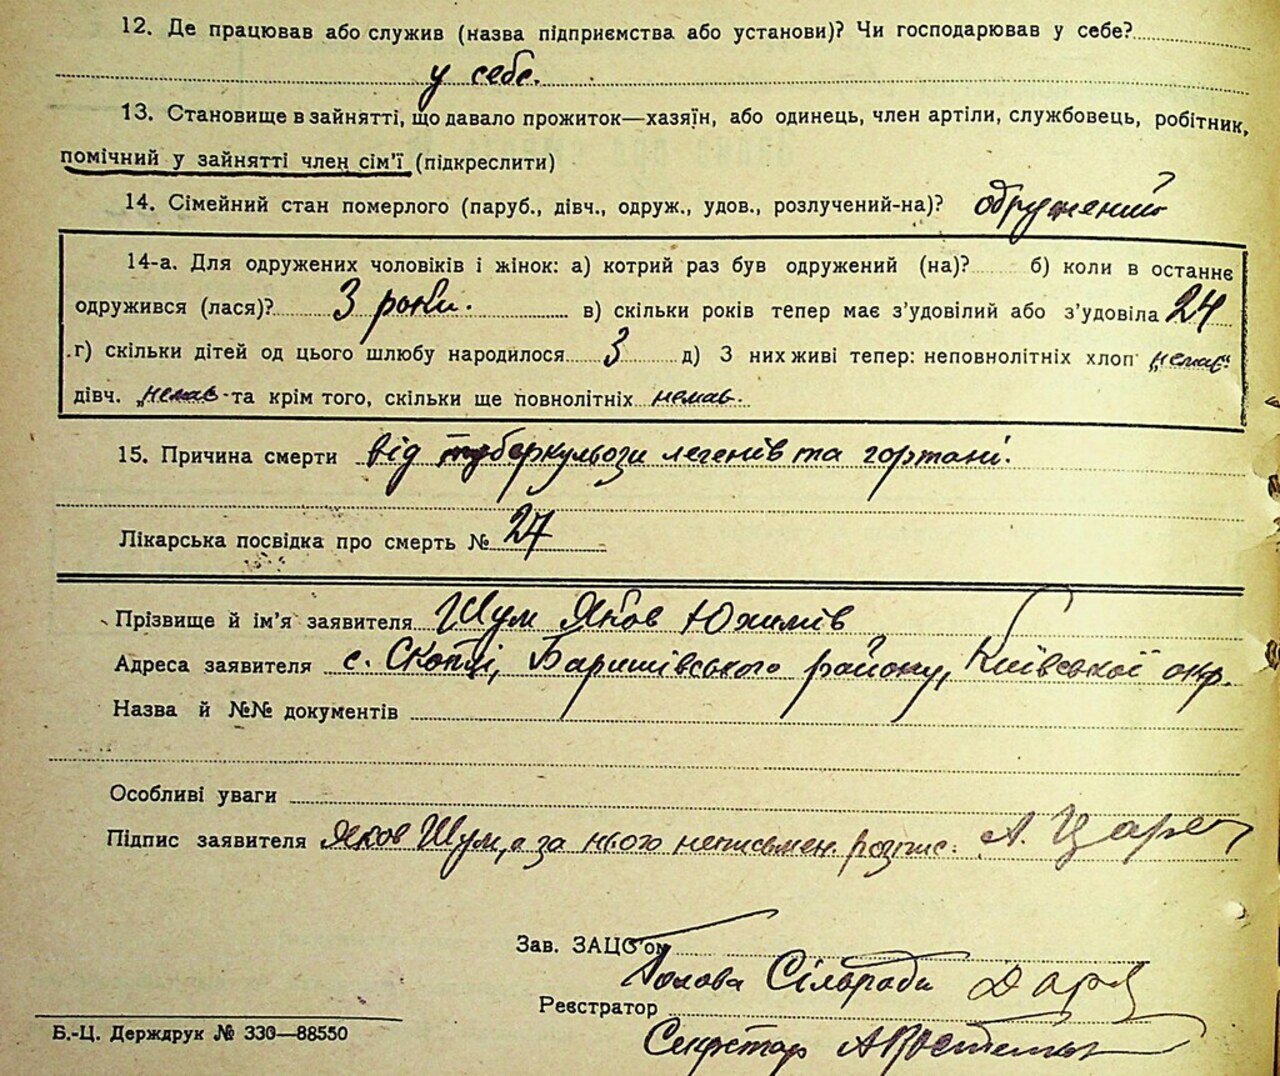 12. Де працював або служив (назва підприємства або установи)? Чи господарював у себе?
у себе.
13. Становище в зайнятті, що давало прожиток—хазяїн, або одинець, член артілі, службовець, робітник,
помічний у зайнятті член сім'ї (підкреслити)
14. Сімейний стан померлого (паруб., дівч., одруж., удов., розлучений-на)? одружений
14-а. Для одружених чоловіків і жінок: а) котрий раз був одружений (на)? б) коли в останнє
одружився (лася)? 3 роки. в) скільки років тепер має з'удовілий або з'удовіла 24
г) скільки дітей од цього шлюбу народилося 3 д) З них живі тепер: неповнолітніх хлоп „немає“
дівч. „немає - та крім того, скільки ще повнолітніх немає.
15. Причина смерти від туберкульози легенів та гортані.
Лікарська посвідка про смерть № 27
Прізвище й ім'я заявителя Шум Яков Юхимів
Адреса заявителя с. Скопці, Баришівського району, Київської окр.
Назва й №№ документів
Особливі уваги
Підпис заявителя Яков Шум, а за нього неписьмен. розпис. А. Царе
Зав. ЗАЦС'ом
Голова Сільради
Реєстратор
Секретар
Б.-Ц. Держдрук № 330—88550